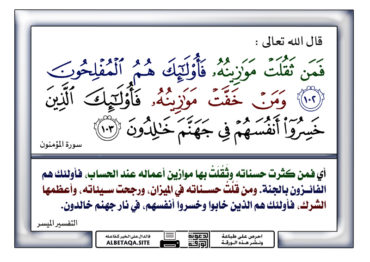 قال الله تعالى :
فَمَن ثَقُلَتْ مَوَٰزِينُهُۥ فَأُو۟لَـٰٓئِكَ هُمُ ٱلْمُفْلِحُونَ
١٠٢ وَمَنْ خَفَّتْ مَوَٰزِينُهُۥ فَأُو۟لَـٰٓئِكَ ٱلَّذِينَ
خَسِرُوٓا۟ أَنفُسَهُمْ فِى جَهَنَّمَ خَـٰلِدُونَ ١٠٣
سورة المؤمنون
أي فمن كثرت حسناته وثَقُلَتْ بها موازين أعماله عند الحساب، فأولئك هم
الفائزون بالجنة. ومن قَلَّتْ حسناته في الميزان، ورجحت سيئاته، وأعظمها
الشرك، فأولئك هم الذين خابوا وخسروا أنفسهم، في نار جهنم خالدون.
التفسير الميسر
احرص على طباعة
ونشر هذه الورقة
الدال على الخير كفاعله
ALBETAQA.SITE